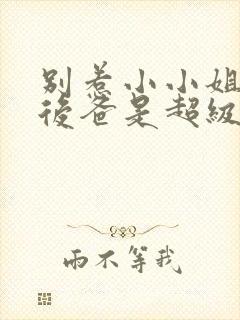 别惹小小姐
後爸是超級
雨不等我